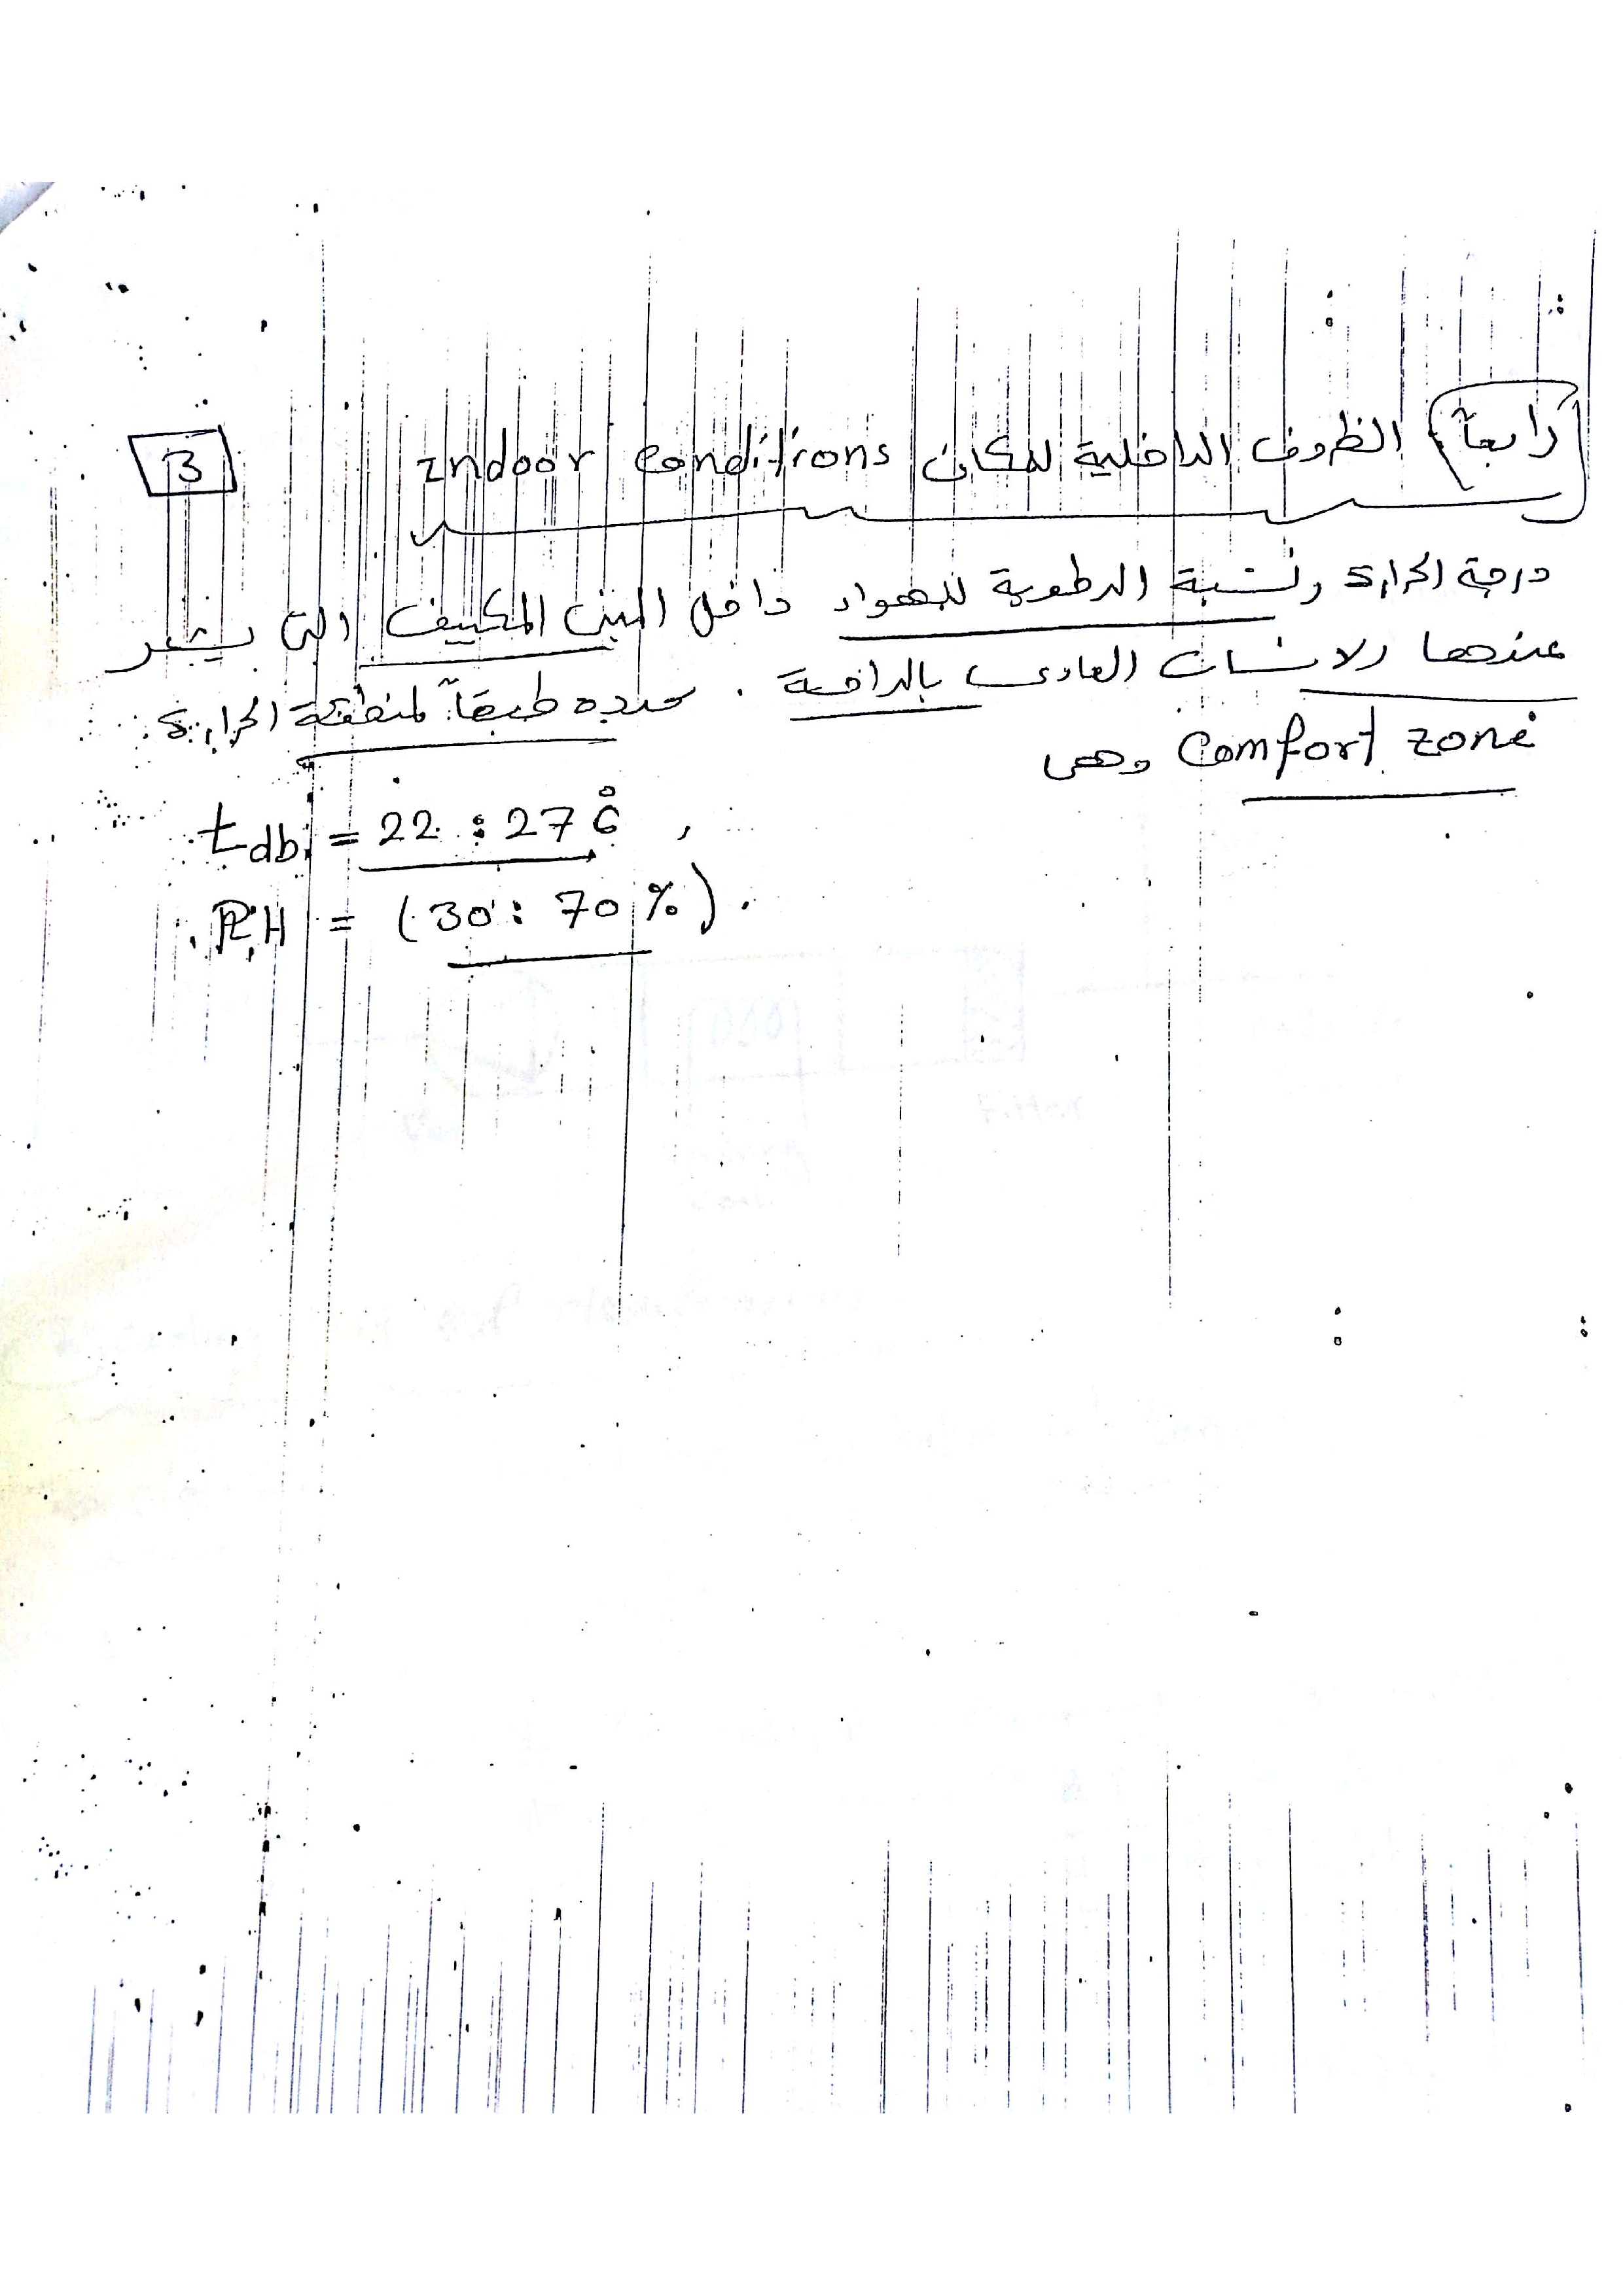 3
رابعاً الظروف الداخلية للمكان Indoor Conditions
درجة الحرارة ونسبة الرطوبة للهواء داخل المبنى المكيف التى يشعر
عندها الانسان العادى بالراحة . محدده طبقاً لمنطقة الحرارة
Comfort zone وهى
tdbi = 22 : 27 °C ,
RH = (30 : 70 %) .